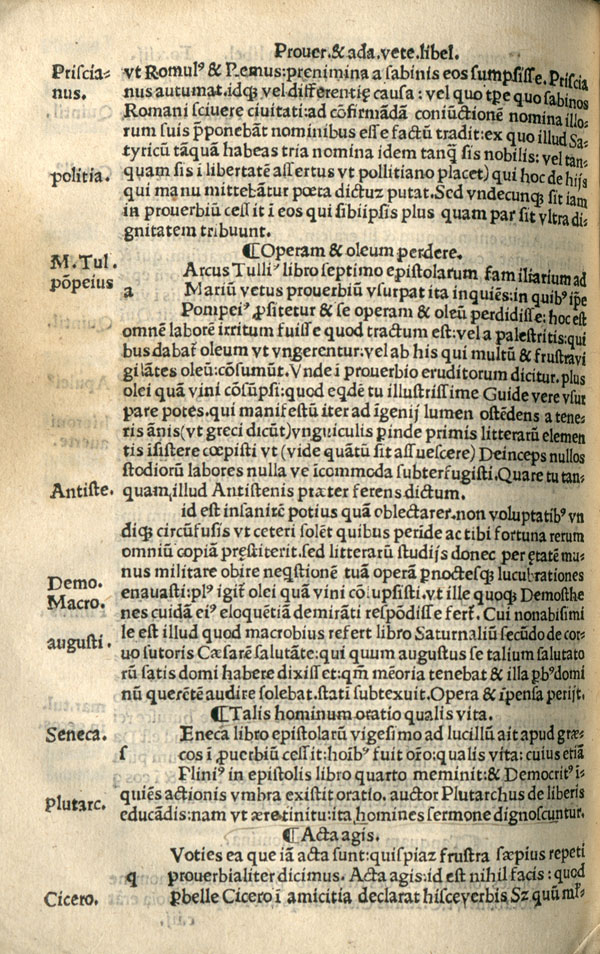 Prouer.& ada.vete.libel.
Priscia-
nus.
vt Romulꝰ & Remus:prenimina a sabinis eos sumpsisse.Priscia
nus autumat.idqꝫ vel differentię causa : vel quo tp̄e quo sabinos
Romani sciuere ciuitati:ad cōfirmādā coniūctionē nomina illo-
rum suis p̄ponebāt nominibus esse factū tradit:ex quo illud Sa-
tyricū tāquā habeas tria nomina idem tanqꝫ sis nobilis: vel tan-
politia.
quam sis i libertatē assertus vt pollitiano placet) qui hoc de hijs
qui manu mittebātur poeta dictuz putat. Sed vndecunqꝫ sit iam
in prouerbiū cessit ī eos qui sibiipsis plus quam par sit vltra di-
gnitatem tribuunt.
¶Operam & oleum perdere.
M.Tul.
pōpeius
a
Arcus Tulliꝰ libro septimo epistolarum familiarium ad
Mariū vetus prouerbiū vsurpat ita inquiēs:in quibꝰ ip̄e
Pompeiꝰ ꝓfitetur & se operam & oleū perdidisse: hoc est
omnē laborē irritum fuisse quod tractum est:vel a palestritis:qui
bus dabat᷑ oleum vt vngerentur:vel ab his qui multū & frustravi
gilātes oleū:cōsumūt. Vnde ī prouerbio eruditorum dicitur.plus
olei quā vini cōsūpsi:quod eqdē tu illustrissime Guide vere vsur
pare potes.qui manifestū iter ad īgenij lumen ostēdens a tene-
ris ānis(vt greci dicūt)vnguiculis ꝓinde primis litterarū elemen
tis īsistere cœpisti vt (vide quātū sit assuescere) Deinceps nullos
stodiorū labores nulla ve īcommoda subterfugisti.Quare tu tan-
Antiste.
quam,illud Antistenis præter ferens dictum.
id est insanirē potius quā oblectarer.non voluptatibꝰ vn
diqꝫ circūfusis vt ceteri solēt quibus peride ac tibi fortuna rerum
omniū copiā pręstiterit.sed litterarū studijs donec per ętatē mu-
nus militare obire neqstionē tuā operā ꝑnoctesqꝫ lucubrationes
Demo.
enauasti:plꝰ igit᷑ olei quā vini cōsūpsisti.vt ille quoqꝫ Demosthe
Macro.
nes cuidā eiꝰ eloquētiā demirāti respōdisse fert᷑. Cui nonabsimi
le est illud quod macrobius refert libro Saturnaliū secūdo de cor-
augusti.
uo sutoris Cæsarē salutāte:qui quum augustus se talium salutato
rū satis domi habere dixisset:qm̄ mēoria tenebat & illa ꝓbꝰ domi
nū querētē audire solebat.stati subtexuit.Opera & īpensa perijt.
¶Talis hominum oratio qualis vita.
Seneca.
s
Eneca libro epistolarū vigesimo ad lucillū ait apud græ-
cos ī ꝓuerbiū cessit:hoībꝰ fuit or̄o:qualis vita: cuius etiā
Pliniꝰ in epistolis libro quarto meminit:& Democritꝰ ī-
plutarc.
quiēs actionis vmbra existit oratio. auctor Plutarchus de liberis
educādis:nam vt ære tinitu:ita homines sermone dignoscuntur.
¶Acta agis.
q
Voties ea que iā acta sunt:quispiaz frustra sæpius repeti
prouerbialiter dicimus. Acta agis:id est nihil facis : quod
Cicero.
ꝑbelle Cicero ī amicitia declarat hisceverbis Sz quū ml̄-